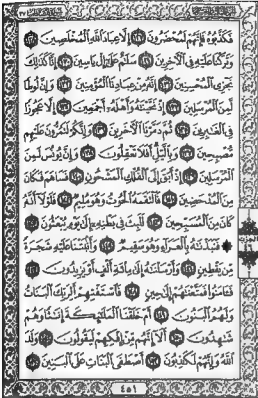 فَكَذَّبُوهُ فَإِنَّهُمْ لَمُحْضَرُونَ ١٢٧ إِلَّا عِبَادَ ٱللَّهِ ٱلْمُخْلَصِينَ ١٢٨
وَتَرَكْنَا عَلَيْهِ فِى ٱلْءَاخِرِينَ ١٢٩ سَلَٰمٌ عَلَىٰٓ إِلْ يَاسِينَ ١٣٠ إِنَّا كَذَٰلِكَ
نَجْزِى ٱلْمُحْسِنِينَ ١٣١ إِنَّهُۥ مِنْ عِبَادِنَا ٱلْمُؤْمِنِينَ ١٣٢ وَإِنَّ لُوطًا
لَّمِنَ ٱلْمُرْسَلِينَ ١٣٣ إِذْ نَجَّيْنَٰهُ وَأَهْلَهُۥٓ أَجْمَعِينَ ١٣٤ إِلَّا عَجُوزًا
فِى ٱلْغَٰبِرِينَ ١٣٥ ثُمَّ دَمَّرْنَا ٱلْءَاخَرِينَ ١٣٦ وَإِنَّكُمْ لَتَمُرُّونَ عَلَيْهِم
مُّصْبِحِينَ ١٣٧ وَبِٱلَّيْلِ أَفَلَا تَعْقِلُونَ ١٣٨ وَإِنَّ يُونُسَ لَمِنَ
ٱلْمُرْسَلِينَ ١٣٩ إِذْ أَبَقَ إِلَى ٱلْفُلْكِ ٱلْمَشْحُونِ ١٤٠ فَسَاهَمَ فَكَانَ
مِنَ ٱلْمُدْحَضِينَ ١٤١ فَٱلْتَقَمَهُ ٱلْحُوتُ وَهُوَ مُلِيمٌ ١٤٢ فَلَوْلَآ أَنَّهُۥ
كَانَ مِنَ ٱلْمُسَبِّحِينَ ١٤٣ لَلَبِثَ فِى بَطْنِهِۦٓ إِلَىٰ يَوْمِ يُبْعَثُونَ ١٤٤
۞ فَنَبَذْنَٰهُ بِٱلْعَرَآءِ وَهُوَ سَقِيمٌ ١٤٥ وَأَنۢبَتْنَا عَلَيْهِ شَجَرَةً
مِّن يَقْطِينٍ ١٤٦ وَأَرْسَلْنَٰهُ إِلَىٰ مِا۟ئَةِ أَلْفٍ أَوْ يَزِيدُونَ ١٤٧
فَـَٔامَنُوا۟ فَمَتَّعْنَٰهُمْ إِلَىٰ حِينٍ ١٤٨ فَٱسْتَفْتِهِمْ أَلِرَبِّكَ ٱلْبَنَاتُ
وَلَهُمُ ٱلْبَنُونَ ١٤٩ أَمْ خَلَقْنَا ٱلْمَلَٰٓئِكَةَ إِنَٰثًا وَهُمْ
شَٰهِدُونَ ١٥٠ أَلَآ إِنَّهُم مِّنْ إِفْكِهِمْ لَيَقُولُونَ ١٥١ وَلَدَ
ٱللَّهُ وَإِنَّهُمْ لَكَٰذِبُونَ ١٥٢ أَصْطَفَى ٱلْبَنَاتِ عَلَى ٱلْبَنِينَ ١٥٣
٤٥١